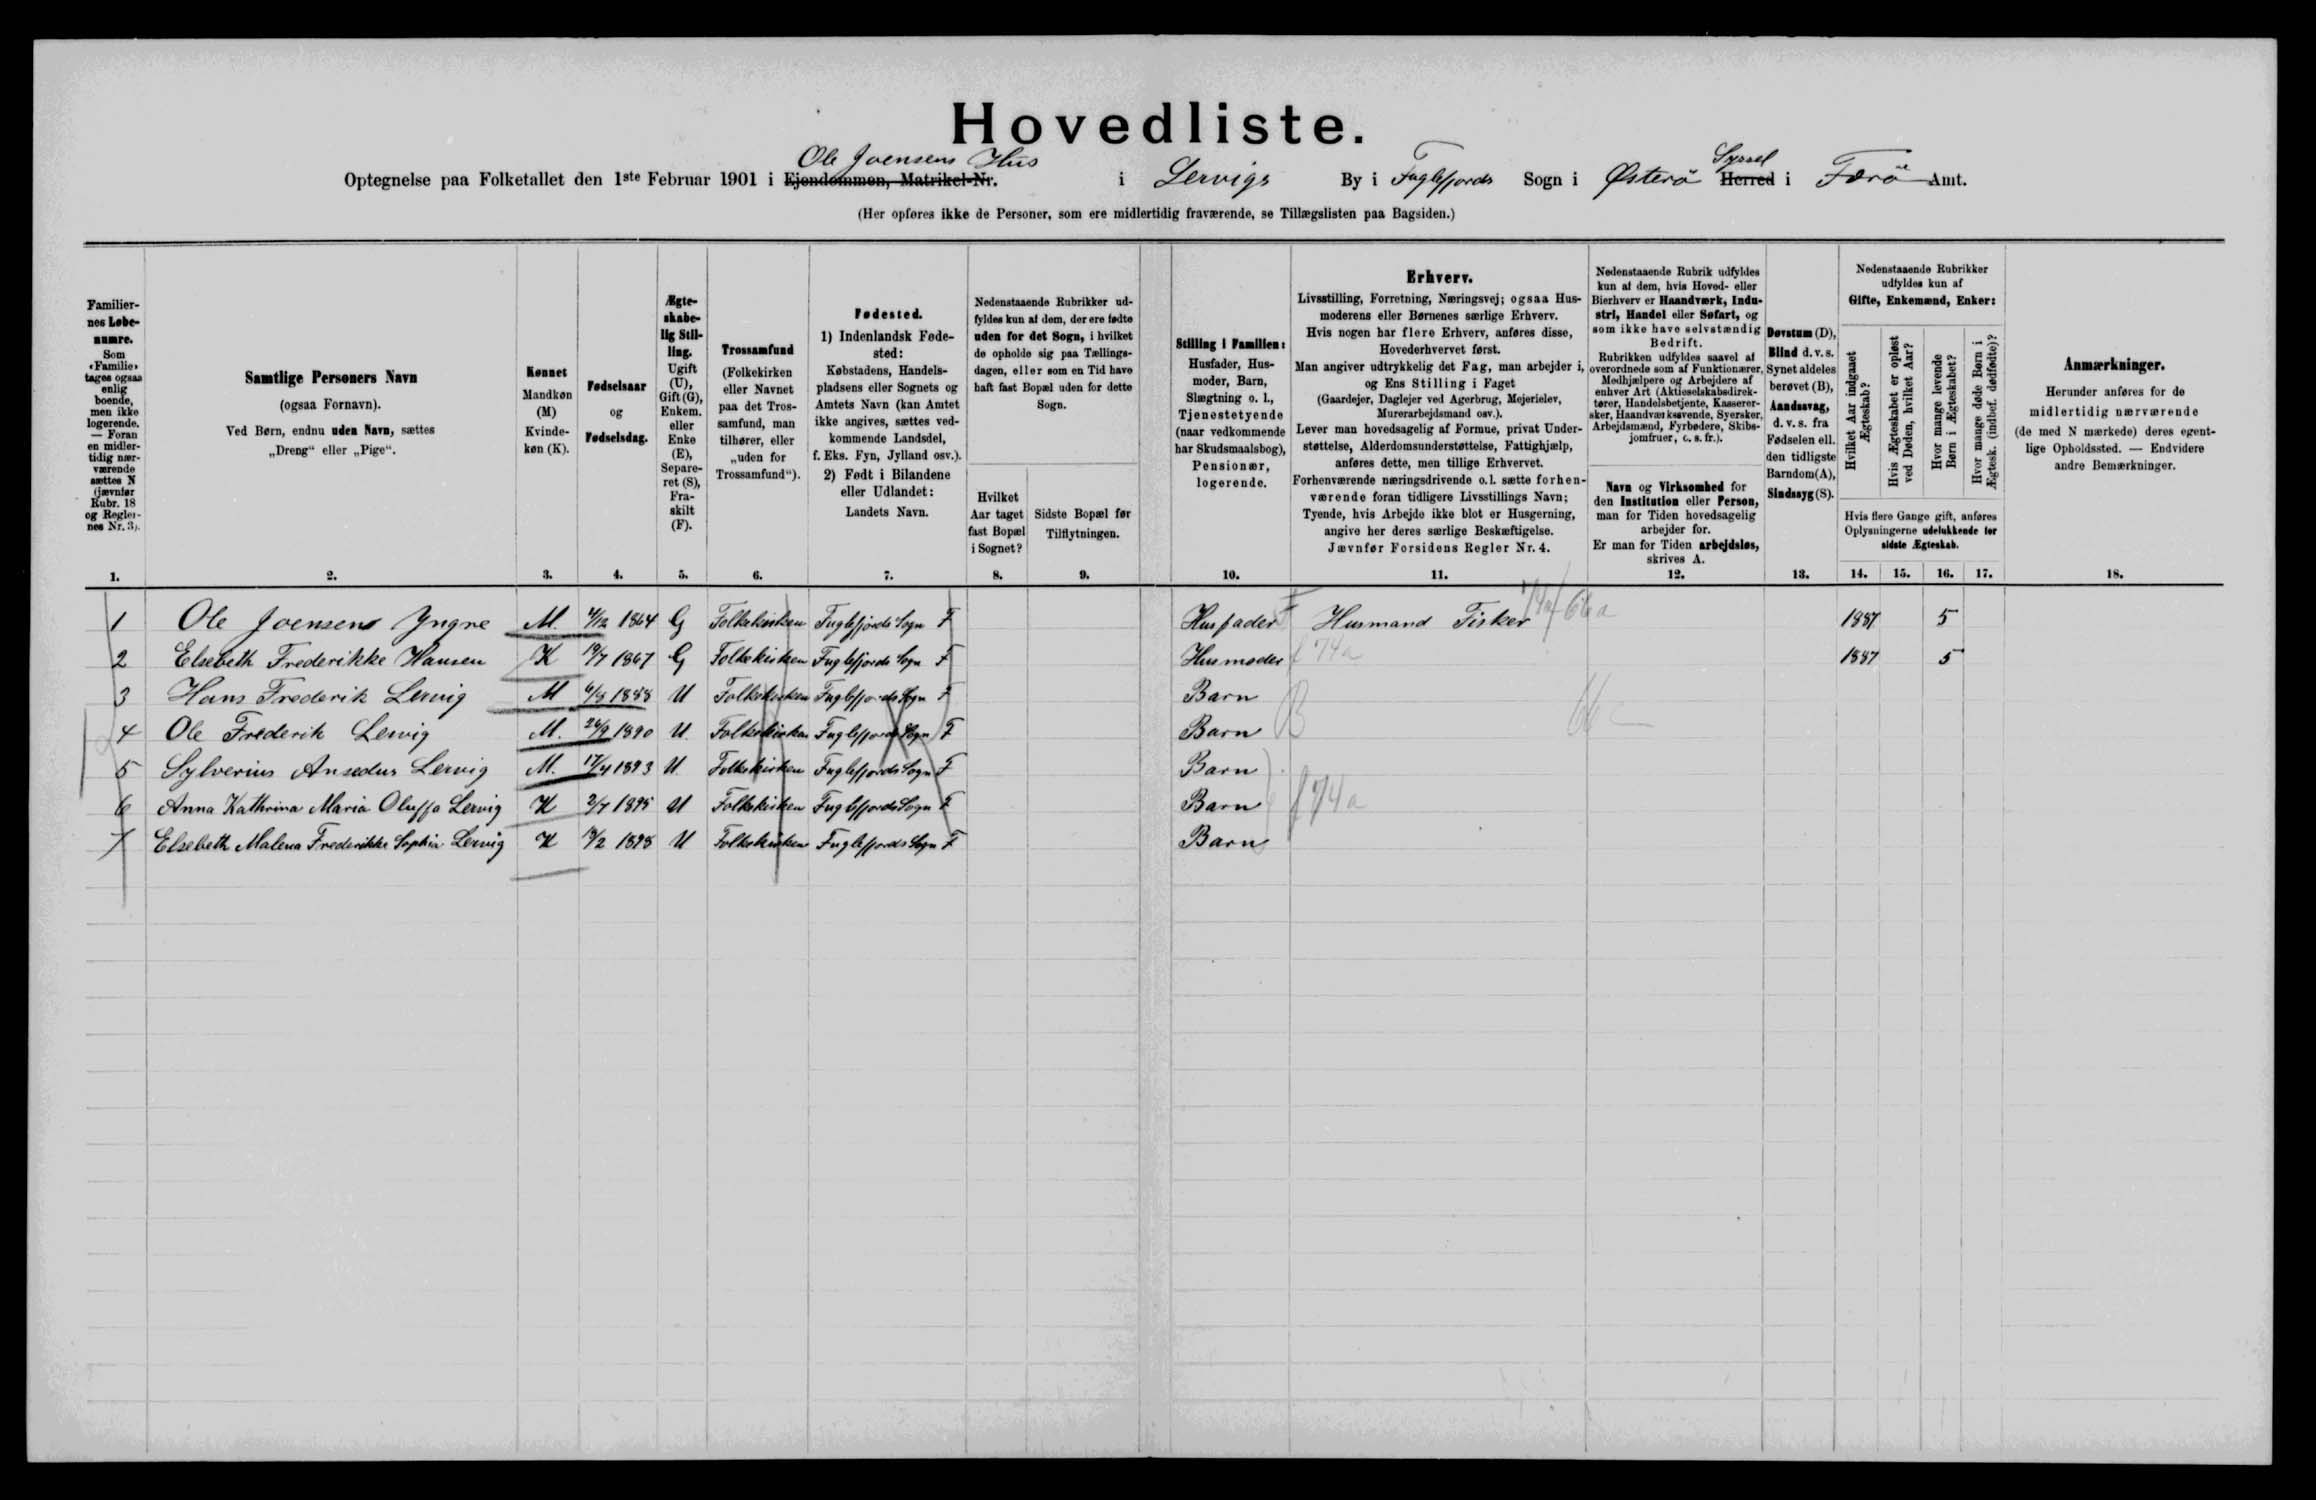 Hovedliste.
Ole Joensens Hus
Syssel
Optegnelse paa Folketallet den 1ste Februar 1901 i Ejendommen, Matrikel-Nr. i Lervigs By i Fuglefjords Sogn i Østerö Herred i Færö Amt.
(Her opføres ikke de Personer, som ere midlertidig fraværende, se Tillægslisten paa Bagsiden.)
Familier-
nes Løbe-
numre.
Som
«Familie»
tages ogsaa
enlig
boende,
men ikke
logerende.
— Foran
en midler-
tidig nær-
værende
sættes N
(jævnfør
Rubr. 18
og Regler-
nes Nr. 3).
1.
Samtlige Personers Navn
(ogsaa Fornavn).
Ved Børn, endnu uden Navn, sættes
„Dreng“ eller „Pige“.
2.
Kønnet
Mandkøn
(M)
Kvinde-
køn (K).
3.
Fødselsaar
og
Fødselsdag.
4.
Ægte-
skabe-
lig Stil-
ling.
Ugift
(U),
Gift (G),
Enkem.
eller
Enke
(E),
Separe-
ret (S),
Fra-
skilt
(F).
5.
Trossamfund
(Folkekirken
eller Navnet
paa det Tros-
samfund, man
tilhører, eller
„uden for
Trossamfund“).
6.
Fødested.
1) Indenlandsk Føde-
sted:
Købstadens, Handels-
pladsens eller Sognets og
Amtets Navn (kan Amtet
ikke angives, sættes ved-
kommende Landsdel,
f. Eks. Fyn, Jylland osv.).
2) Født i Bilandene
eller Udlandet:
Landets Navn.
7.
Nedenstaaende Rubrikker ud-
fyldes kun af dem, der ere fødte
uden for det Sogn, i hvilket
de opholde sig paa Tællings-
dagen, eller som en Tid have
haft fast Bopæl uden for dette
Sogn.
Hvilket
Aar taget
fast Bopæl
i Sognet?
8.
Sidste Bopæl før
Tilflytningen.
9.
Stilling i Familien:
Husfader, Hus-
moder, Barn,
Slægtning o. l.,
Tjenestetyende
(naar vedkommende
har Skudsmaalsbog),
Pensionær,
logerende.
10.
Erhverv.
Livsstilling, Forretning, Næringsvej; ogsaa Hus-
moderens eller Børnenes særlige Erhverv.
Hvis nogen har flere Erhverv, anføres disse,
Hovederhvervet først.
Man angiver udtrykkelig det Fag, man arbejder i,
og Ens Stilling i Faget
(Gaardejer, Daglejer ved Agerbrug, Mejerielev,
Murerarbejdsmand osv.).
Lever man hovedsagelig af Formue, privat Under-
støttelse, Alderdomsunderstøttelse, Fattighjælp,
anføres dette, men tillige Erhvervet.
Forhenværende næringsdrivende o. l. sætte forhen-
værende foran tidligere Livsstillings Navn;
Tyende, hvis Arbejde ikke blot er Husgerning,
angive her deres særlige Beskæftigelse.
Jævnfør Forsidens Regler Nr. 4.
11.
Nedenstaaende Rubrik udfyldes
kun af dem, hvis Hoved- eller
Bierhverv er Haandværk, Indu-
stri, Handel eller Søfart, og
som ikke have selvstændig
Bedrift.
Rubrikken udfyldes saavel af
overordnede som af Funktionærer,
Medhjælpere og Arbejdere af
enhver Art (Aktieselskabsdirek-
tører, Handelsbetjente, Kasserer-
sker, Haandværkssvende, Syersker,
Arbejdsmænd, Fyrbødere, Skibs-
jomfruer, o. s. fr.).
Navn og Virksomhed for
den Institution eller Person,
man for Tiden hovedsagelig
arbejder for.
Er man for Tiden arbejdsløs,
skrives A.
12.
Døvstum (D),
Blind d. v. s.
Synet aldeles
berøvet (B),
Aandssvag,
d. v. s. fra
Fødselen ell.
den tidligste
Barndom (A),
Sindssyg (S).
13.
Nedenstaaende Rubrikker
udfyldes kun af
Gifte, Enkemænd, Enker:
Hvilket Aar indgaaet
Ægteskab?
Hvis Ægteskabet er opløst
ved Døden, hvilket Aar?
Hvor mange levende
Børn i Ægteskabet?
Hvor mange døde Børn i
Ægtesk. (indbef. dødfødte)?
Hvis flere Gange gift, anføres
Oplysningerne udelukkende for
sidste Ægteskab.
14. 15. 16. 17.
Anmærkninger.
Herunder anføres for de
midlertidig nærværende
(de med N mærkede) deres egent-
lige Opholdssted. — Endvidere
andre Bemærkninger.
18.
1 Ole Joensens Yngre M. 4/12 1864 G Folkekirken Fuglefjords Sogn F Husfader F Husmand Fisker 74a/66a 1887 5
2 Elsebeth Frederikke Hansen K 19/7 1867 G Folkekirken Fuglefjords Sogn F Husmoder f 74a 1887 5
3 Hans Frederik Lervig M 6/5 1888 U Folkekirken Fuglefjords Sogn F Barn
4 Ole Frederik Lervig M. 26/9 1890 U. Folkekirken Fuglefjords Sogn F Barn B 66
5 Sylverius Ansedus Lervig M. 17/4 1893 U. Folkekirken Fuglefjords Sogn F Barn
6 Anna Kathrina Maria Oluffa Lervig K 2/7 1895 U Folkekirken Fuglefjords Sogn F Barn f 74a
7 Elsebeth Malena Frederikke Sophia Lervig K /2 1898 U Folkekirken Fuglefjords Sogn F Barn